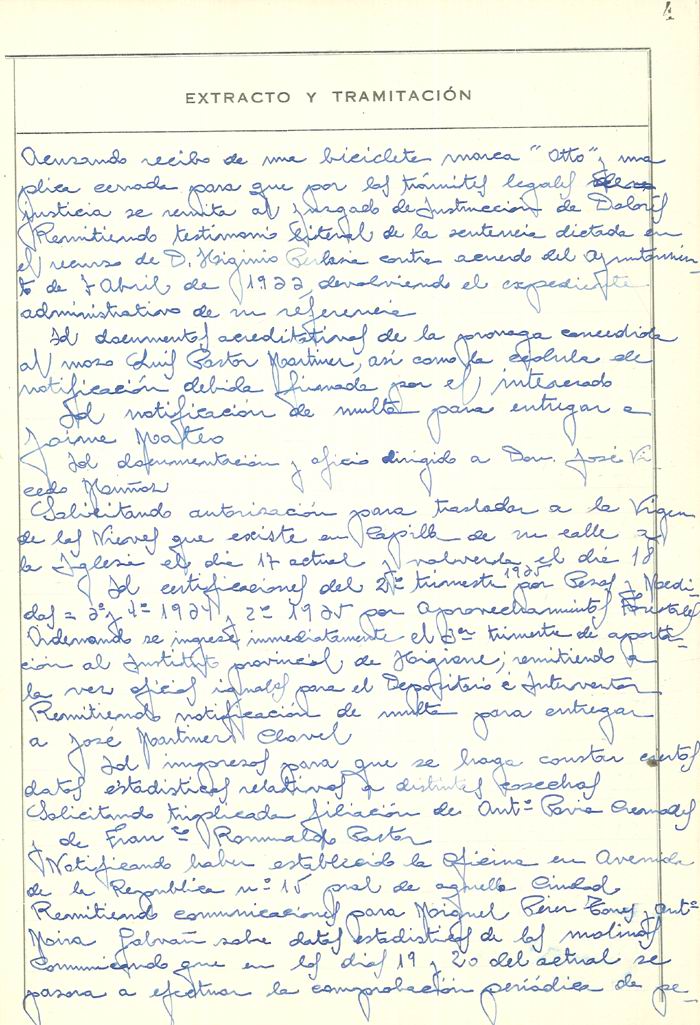 4
EXTRACTO Y TRAMITACIÓN
Acusando recibo de una bicicleta marca "Otto", una
plica cerrada para que por los trámites legales
justicia se remita al Juzgado de Instrucción de Dolores
Remitiendo testimonio literal de la sentencia dictada en
el recurso de D. Higinio contra acuerdo del Ayuntamien-
to de 7 Abril de 1922 devolviendo el expediente
administrativo de su referencia
Id documentos acreditativos de la proroga concedida
al mozo Luis Pastor Martinez, así como la cédula de
notificación debida firmada por el interesado
Id notificación de multa para entregar a
Jaime Mateo
Id documentación y oficio dirigido a Don. José Vi
cedo Muñoz
Solicitando autorización para trasladar a la Virgen
de las Nieves que existe en Capilla de su calle a
la Iglesia el dia 17 actual y volverla el dia 18
Id certificaciones del 2º trimestre 1935 por Pesas y Medi-
das = 3º y 4º 1934 y 2º 1935 por Aprovechamientos Forestales
Ordenando se ingrese inmediatamente el 3er trimestre de aporta-
ción al Instituto provincial de Higiene; remitiendo a
la vez oficios iguales para el Depositario é Interventor
Remitiendo notificación de multa para entregar
a José Martinez Clavel
Id impresos para que se haga constar ciertos
datos estadisticos relativos a distintas cosechas
Solicitando triplicada filiación de Antº Pavia Cremades
y de Franco Romualdo Pastor
Notificando haber establecido la Oficina en Avenida
de la Republica nº 15 pral de aquella Ciudad
Remitiendo comunicaciones para Miguel Perez Torres y Antº
Mira Galvañ sobre datos estadisticos de los molinos
Comunicando que en los dias 19 y 20 del actual se
pasara a efectuar la comprobación periódica de pe-